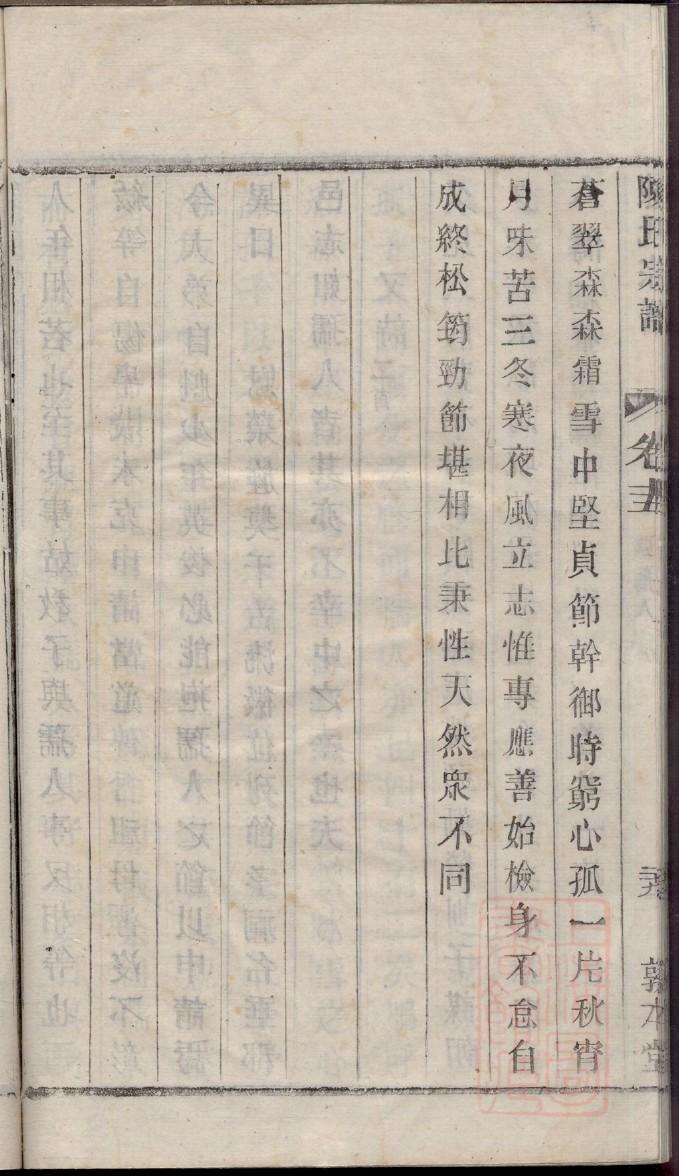 陳氏宗譜
卷五
敦本堂
蒼翠森森霜雪中堅貞節幹御時窮心孤一片秋宵
月味苦三冬寒夜風立志惟專應善始檢身不怠自
成終松筠勁節堪相比秉性天然衆不同